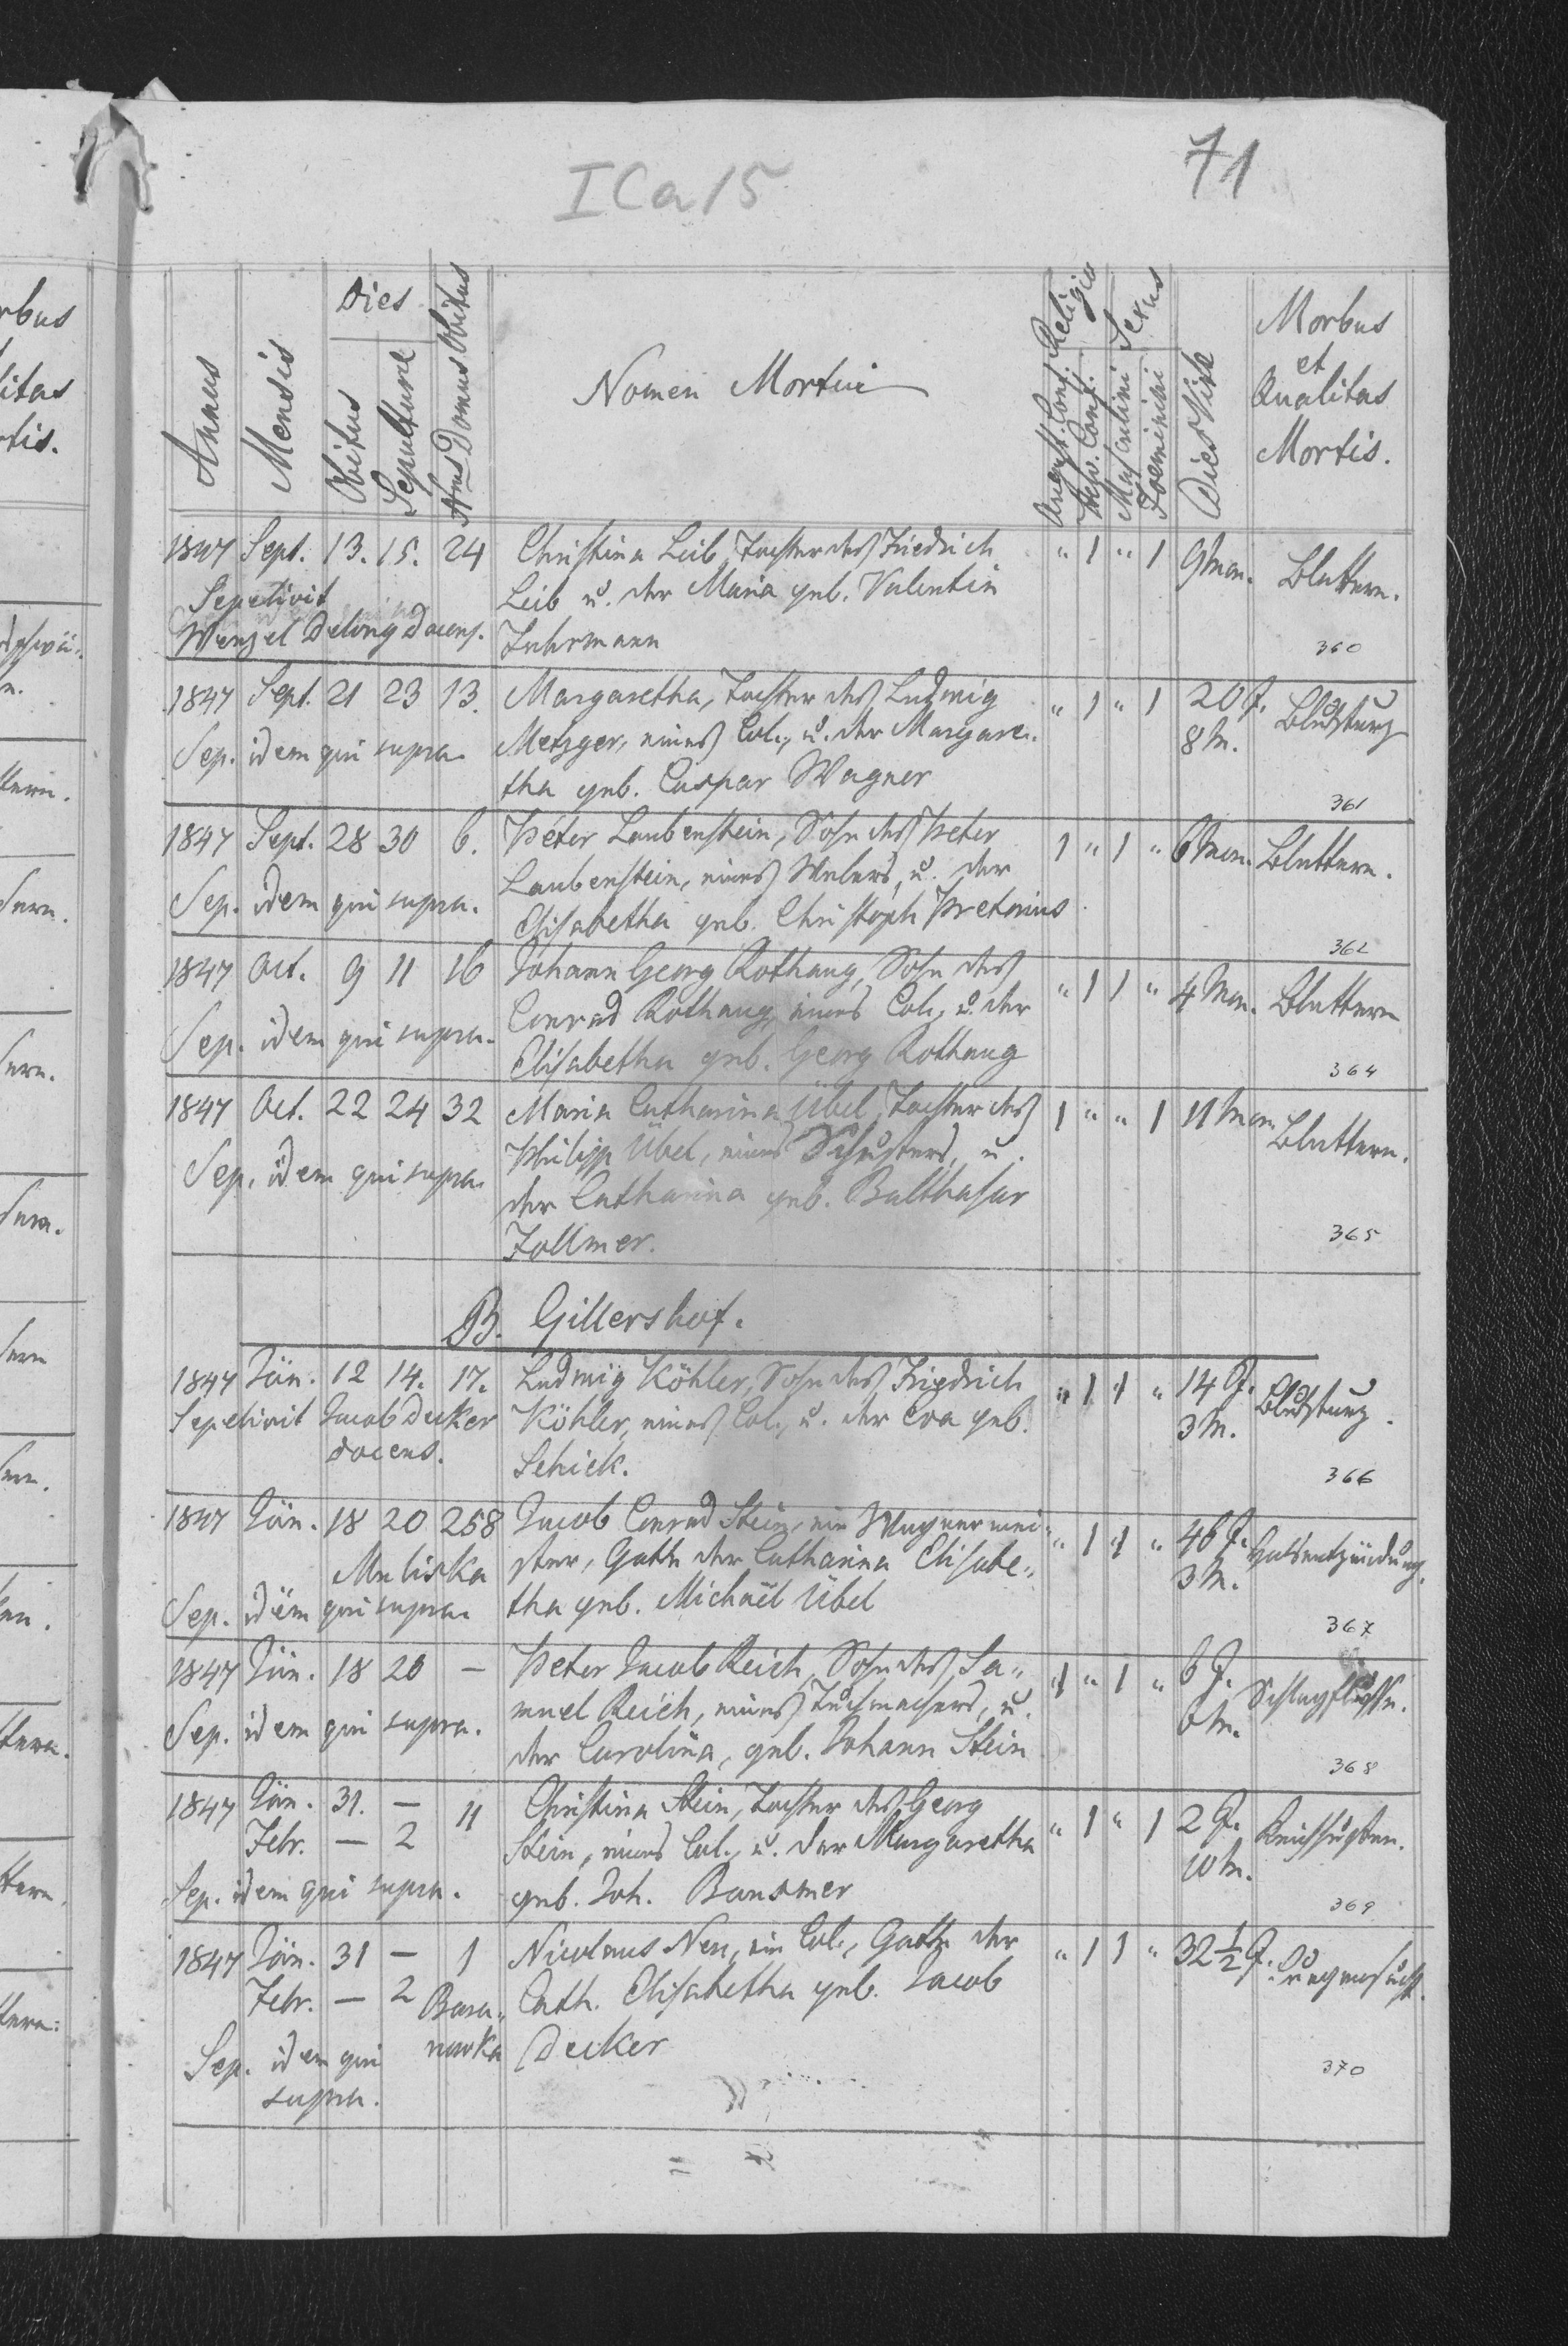 71
I C a 15
Annus Mensis Dies Obitus Sepulturæ Nrus Domus Obitus Nomen Mortui Religio August. Conf. Helv. Conf. Sexus Masculini Foeminini Dies Vitæ Morbus et Qualitas Mortis.
1847 Sept. 13. 15. 24 Christina Leib, Tochter des Friedrich " 1 " 1 9 Mon. Blattern.
Sepelivit Leib u. der Maria geb. Valentin
Wenzel Delong docens. Fuhrmann 360
1847 Sept. 21 23 13. Margaretha, Tochter des Ludwig " 1 " 1 20 J. Blutsturz
Sep. idem qui supra. Metzger, eines Col., u. der Margare- 8 M.
tha geb. Caspar Wagner 361
1847 Sept. 28 30 6. Peter Laubenstein, Sohn des Peter 1 " 1 " 6 Mon. Blattern.
Laubenstein, eines Webers, u. der
Sep. idem qui supra. Elisabetha geb. Christoph Pretorius
362
1847 Oct. 9 11 16 Johann Georg Rothaug, Sohn des " 1 1 " 4 Mon. Blattern
Conrad Rothaug, eines Col., u. der
Sep. idem qui supra. Elisabetha geb. Georg Rothaug 364
1847 Oct. 22 24 32 Maria Catharina Übel, Tochter des 1 " " 1 11 Mon. Blattern.
Sep. idem qui supra. Philipp Übel, eines Schusters, u.
der Catharina geb. Balthasar
Follmer. 365
B. Gillershof.
1847 Jän. 12 14. 17. Ludwig Köhler, Sohn des Friedrich " 1 1 " 14 J. Blutsturz.
Sepelivit Jacob Decker Köhler, eines Col., u. der Eva geb. 3 M.
docens. Schick. 366
1847 Jän. 18 20 258 Jacob Conrad Stein, ein Wagnermei- " 1 1 " 46 J. Halsentzündung.
Meliska ster, Gatte der Catharina Elisabe- 3 M.
Sep. idem qui supra. tha geb. Michaël Übel
367
1847 Jän. 18 20 — Peter Jacob Reich, Sohn des Sa- 1 " 1 " 6 J. Schlagflusse.
Sep. idem qui supra. muel Reich, eines Tuchmachers, u. 6 M.
der Carolina, geb. Johann Stein 368
1847 Jän. 31. — 11 Christina Stein, Tochter des Georg " 1 " 1 2 J. Keichhusten.
Febr. — 2 Stein, eines Col., u. der Margaretha 10 M.
Sep. idem qui supra. geb. Joh. Bansmer 369
1847 Jän. 31 — 1 Nicolaus Neu, ein Col., Gatte der " 1 1 " 32 1/2 J. Lungensucht.
Febr. — 2 Bara- Cath. Elisabetha geb. Jacob
Sep. idem qui nowka Decker
supra. 370